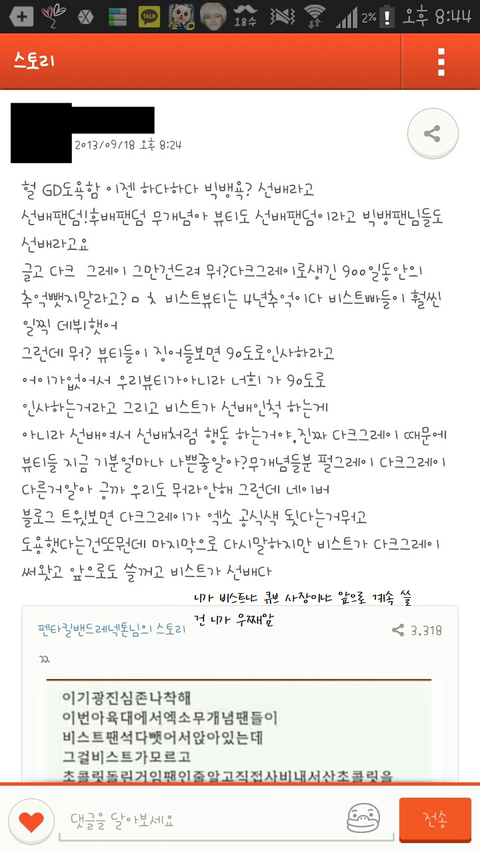 TALK
18수
2%
오후 8:44
스토리
2013/09/18 오후 8:24
헐 GD도욕함 이젠 하다하다 빅뱅욕? 선배라고
선배팬덤!후배팬덤 무개념아 뷰티도 선배팬덤이라고 빅뱅팬님들도
선배라고요
글고 다크 그레이 그만건드려 뭐?다크그레이로생긴 900일동안의
추억뺏지말라고?ㅁㅊ 비스트뷰티는 4년추억이다 비스트빠들이 훨씬
일찍 데뷔했어
그런데 뭐? 뷰티들이 징어들보면 90도로인사하라고
어이가없어서 우리뷰티가아니라 너희가 90도로
인사하는거라고 그리고 비스트가 선배인척 하는게
아니라 선배여서 선배처럼 행동 하는거야,진짜 다크그레이 때문에
뷰티들 지금 기분얼마나 나쁜줄알아?무개념들분 펄그레이 다크그레이
다른거알아 긍까 우리도 뭐라안해 그런데 네이버
블로그 트윗보면 다크그레이가 엑소 공식색 됫다는거뭐고
도용했다는건또뭔데 마지막으로 다시말하지만 비스트가 다크그레이
써왓고 앞으로도 쓸꺼고 비스트가 선배다
니가 비스트냐 큐브 사장이냐 앞으로 계속 쓸
건 니가 우째앎
펜타킬밴드레넥톤님의 스토리
3,318
ㅉ
이기광진심존나착해
이번아육대에서엑소무개념팬들이
비스트팬석다뺏어서앉아있는데
그걸비스트가모르고
초콜릿돌린거임팬인줄알고직접사비내서산초콜릿을
댓글을 달아보세요
전송